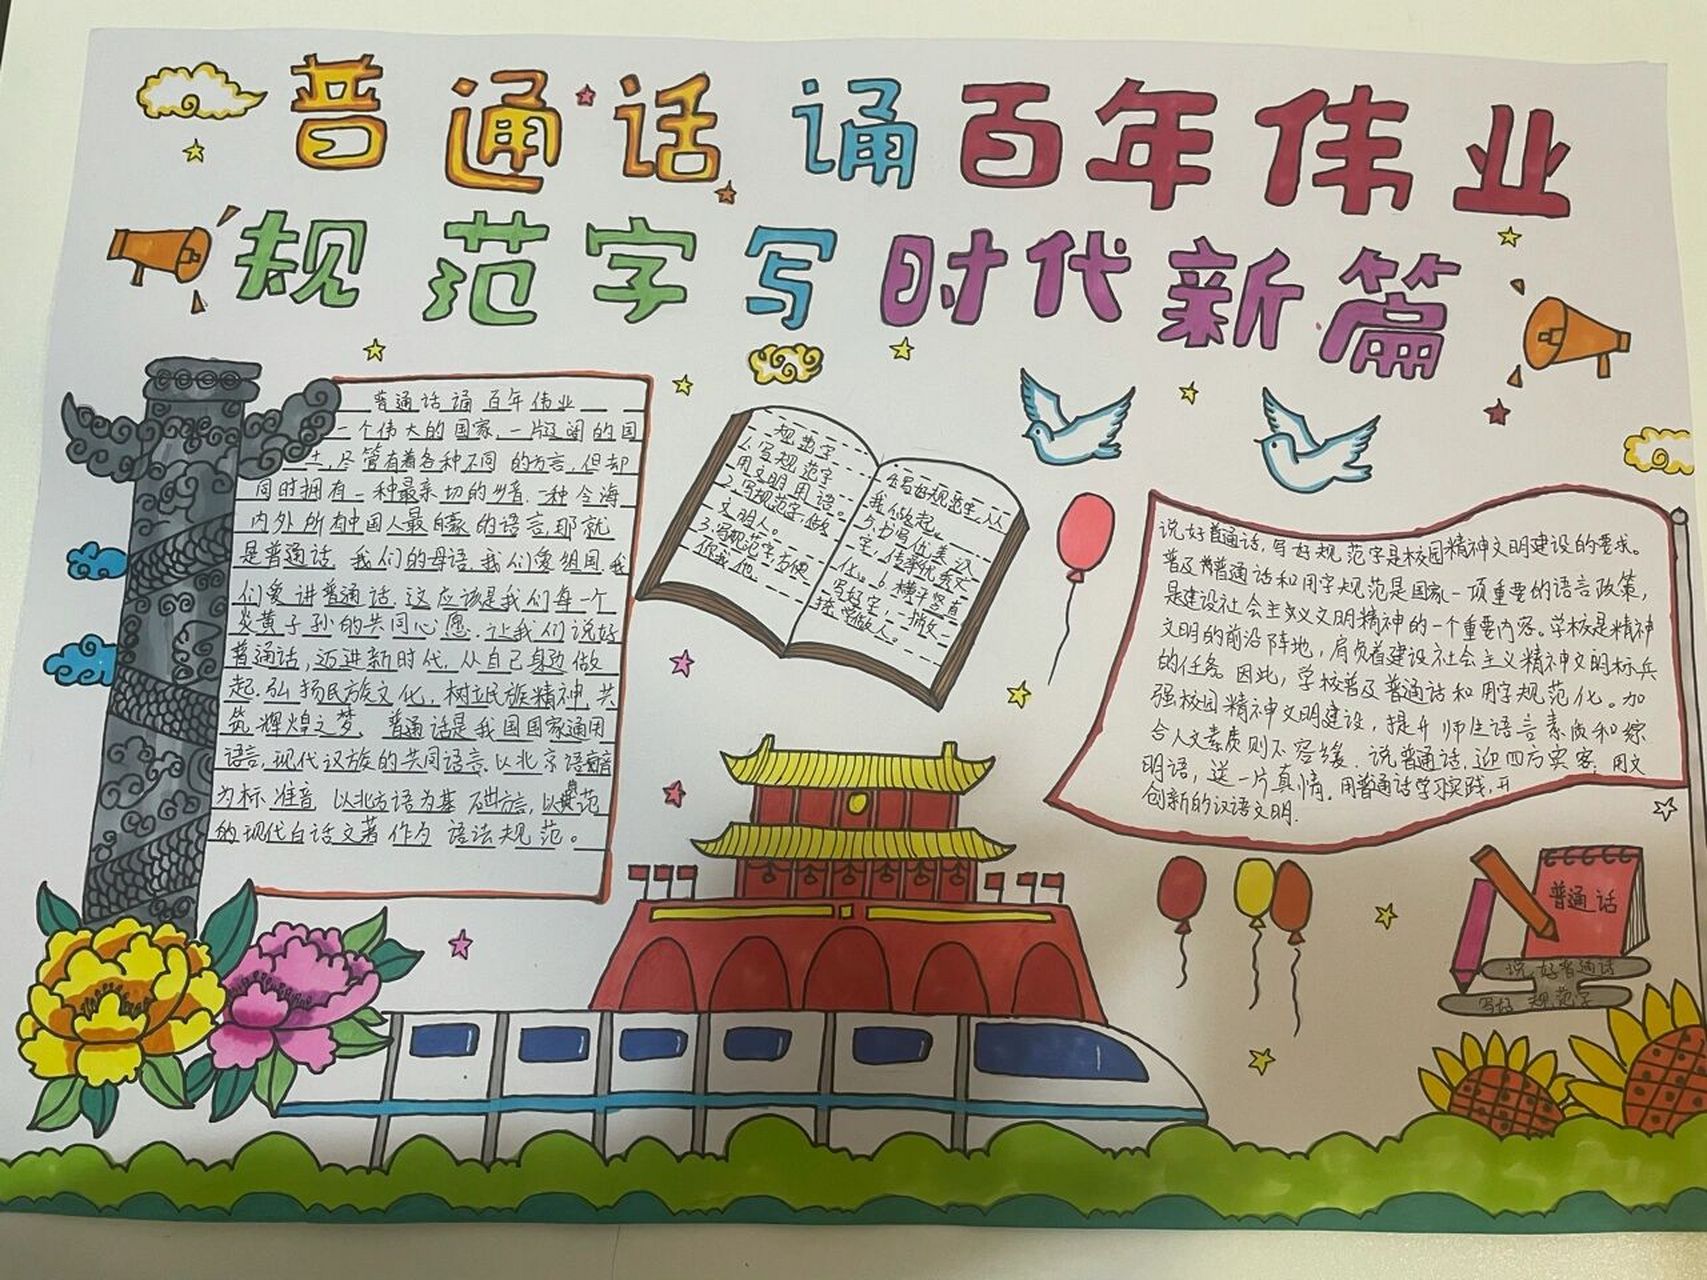 普通话 诵百年伟业
规范字写时代新篇
普通话诵百年伟业
一个伟大的国家,一片辽阔的国
土,尽管有着各种不同的方言,但却
同时拥有一种最亲切的乡音,一种令海
内外所有中国人最自豪的语言,那就
是普通话,我们的母语,我们爱祖国,我
们爱讲普通话,这应该是我们每一个
炎黄子孙的共同心愿.让我们说好
普通话,迈进新时代,从自己身边做
起.弘扬民族文化,树立民族精神,共
筑辉煌之梦, 普通话是我国国家通用
语言,现代汉族的共同语言.以北京语音
为标准音,以北方语为基础方言,以典范
的现代白话文著作为语法规范。
规范字
1.写规范字
用文明用语。
2.写规范字,做
文明人。
3.写规范字,方便
你我他
我做起。
写好字,一撇一
捺学做人。
说好普通话,写好规范字是校园精神文明建设的要求。
普及普通话和用字规范是国家一项重要的语言政策,
是建设社会主义文明精神的一个重要内容。学校是精神
文明的前沿阵地,肩负着建设社会主义精神文明标兵
的任务,因此,学校普及普通话和用字规范化。加
强校园精神文明建设,提升师生语言素质和综
合人文素质则不容缓.说普通话,迎四方宾客,用文
明语,送一片真情。用普通话学习实践,开
创新的汉语文明.
普通话
说好普通话
写好规范字